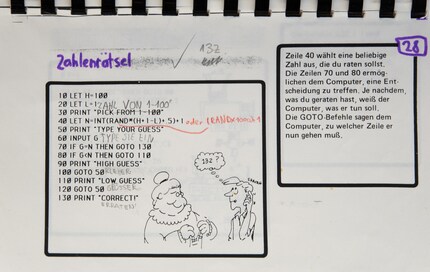 Zahlenrätsel
132
10 LET H=100
20 LET L=1 ZAHL VON 1-100"
30 PRINT "PICK FROM 1-100"
40 LET N=INT(RAND*(H+1-L)+.5)+1 oder
50 PRINT "TYPE YOUR GUESS"
60 INPUT G
70 IF G=N THEN GOTO 130
80 IF G>N THEN GOTO 110
90 PRINT "HIGH GUESS"
100 GOTO 50
110 PRINT "LOW GUESS"
120 GOTO 50
130 PRINT "CORRECT!"
132 ?
28
Zeile 40 wählt eine beliebige
Zahl aus, die du raten sollst.
Die Zeilen 70 und 80 ermög-
lichen dem Computer, eine Ent-
scheidung zu treffen. Je nachdem,
was du geraten hast, weiß der
Computer, was er tun soll.
Die GOTO-Befehle sagen dem
Computer, zu welcher Zeile er
nun gehen muß.